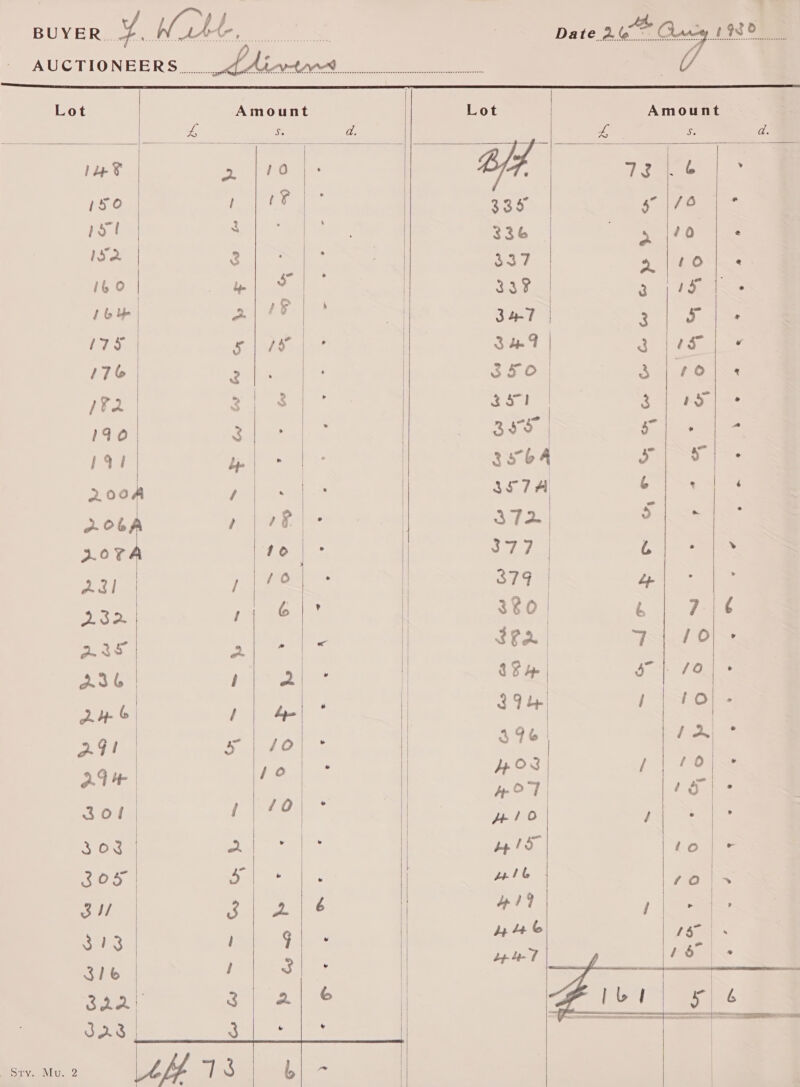 BUYER F. Webb. Date 26th Aug 1930
AUCTIONEERS Stevens
Lot Amount Lot Amount
£ s. d. £ s. d.
148 2 10 -
150 1 18 -
151 3 - -
152 3 - -
160 4 5 -
164 2 18 -
175 5 15 -
176 3 - -
182 3 3 -
190 3 - -
191 4 - -
200A 1 - -
206A 1 18 -
207A 10 -
231 1 10 -
232 1 6 -
235 2 - -
236 1 2 -
246 1 4 -
291 5 10 -
294 10 -
301 1 10 -
303 2 - -
305 5 - -
311 3 2 6
313 1 9 -
316 1 3 -
322 3 2 6
323 3 - -
c/f 73 6 -
B/f. 73 6 -
335 5 10 -
336 2 10 -
337 2 10 -
338 3 15 -
347 3 5 -
349 3 15 -
350 3 10 -
351 3 15 -
355 5 - -
356A 5 5 -
357A 6 - -
372 5 - -
377 6 - -
379 4 - -
380 6 7 6
382 7 10 -
384 5 10 -
394 1 10 -
396 12 -
403 1 10 -
407 15 -
410 1 - -
415 10 -
416 10 -
419 1 - -
446 15 -
447 15 -
£161 5 6
Stv. Mu. 2